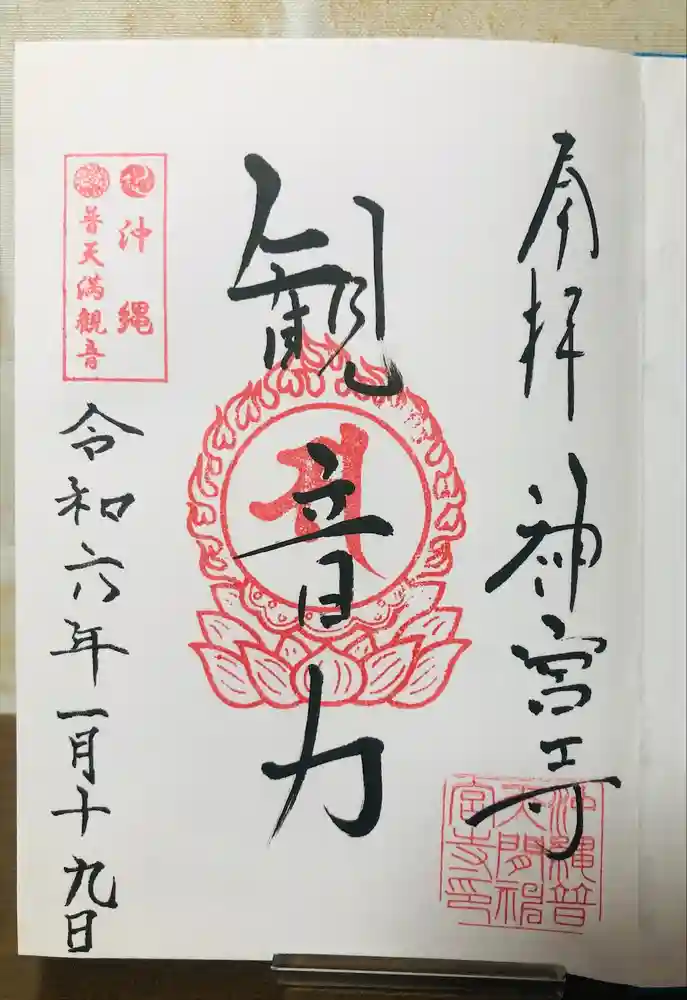 奉拝 神宮寺
観音力
沖縄
普天満観音
令和六年一月十九日
沖縄普
天間神
宮寺印